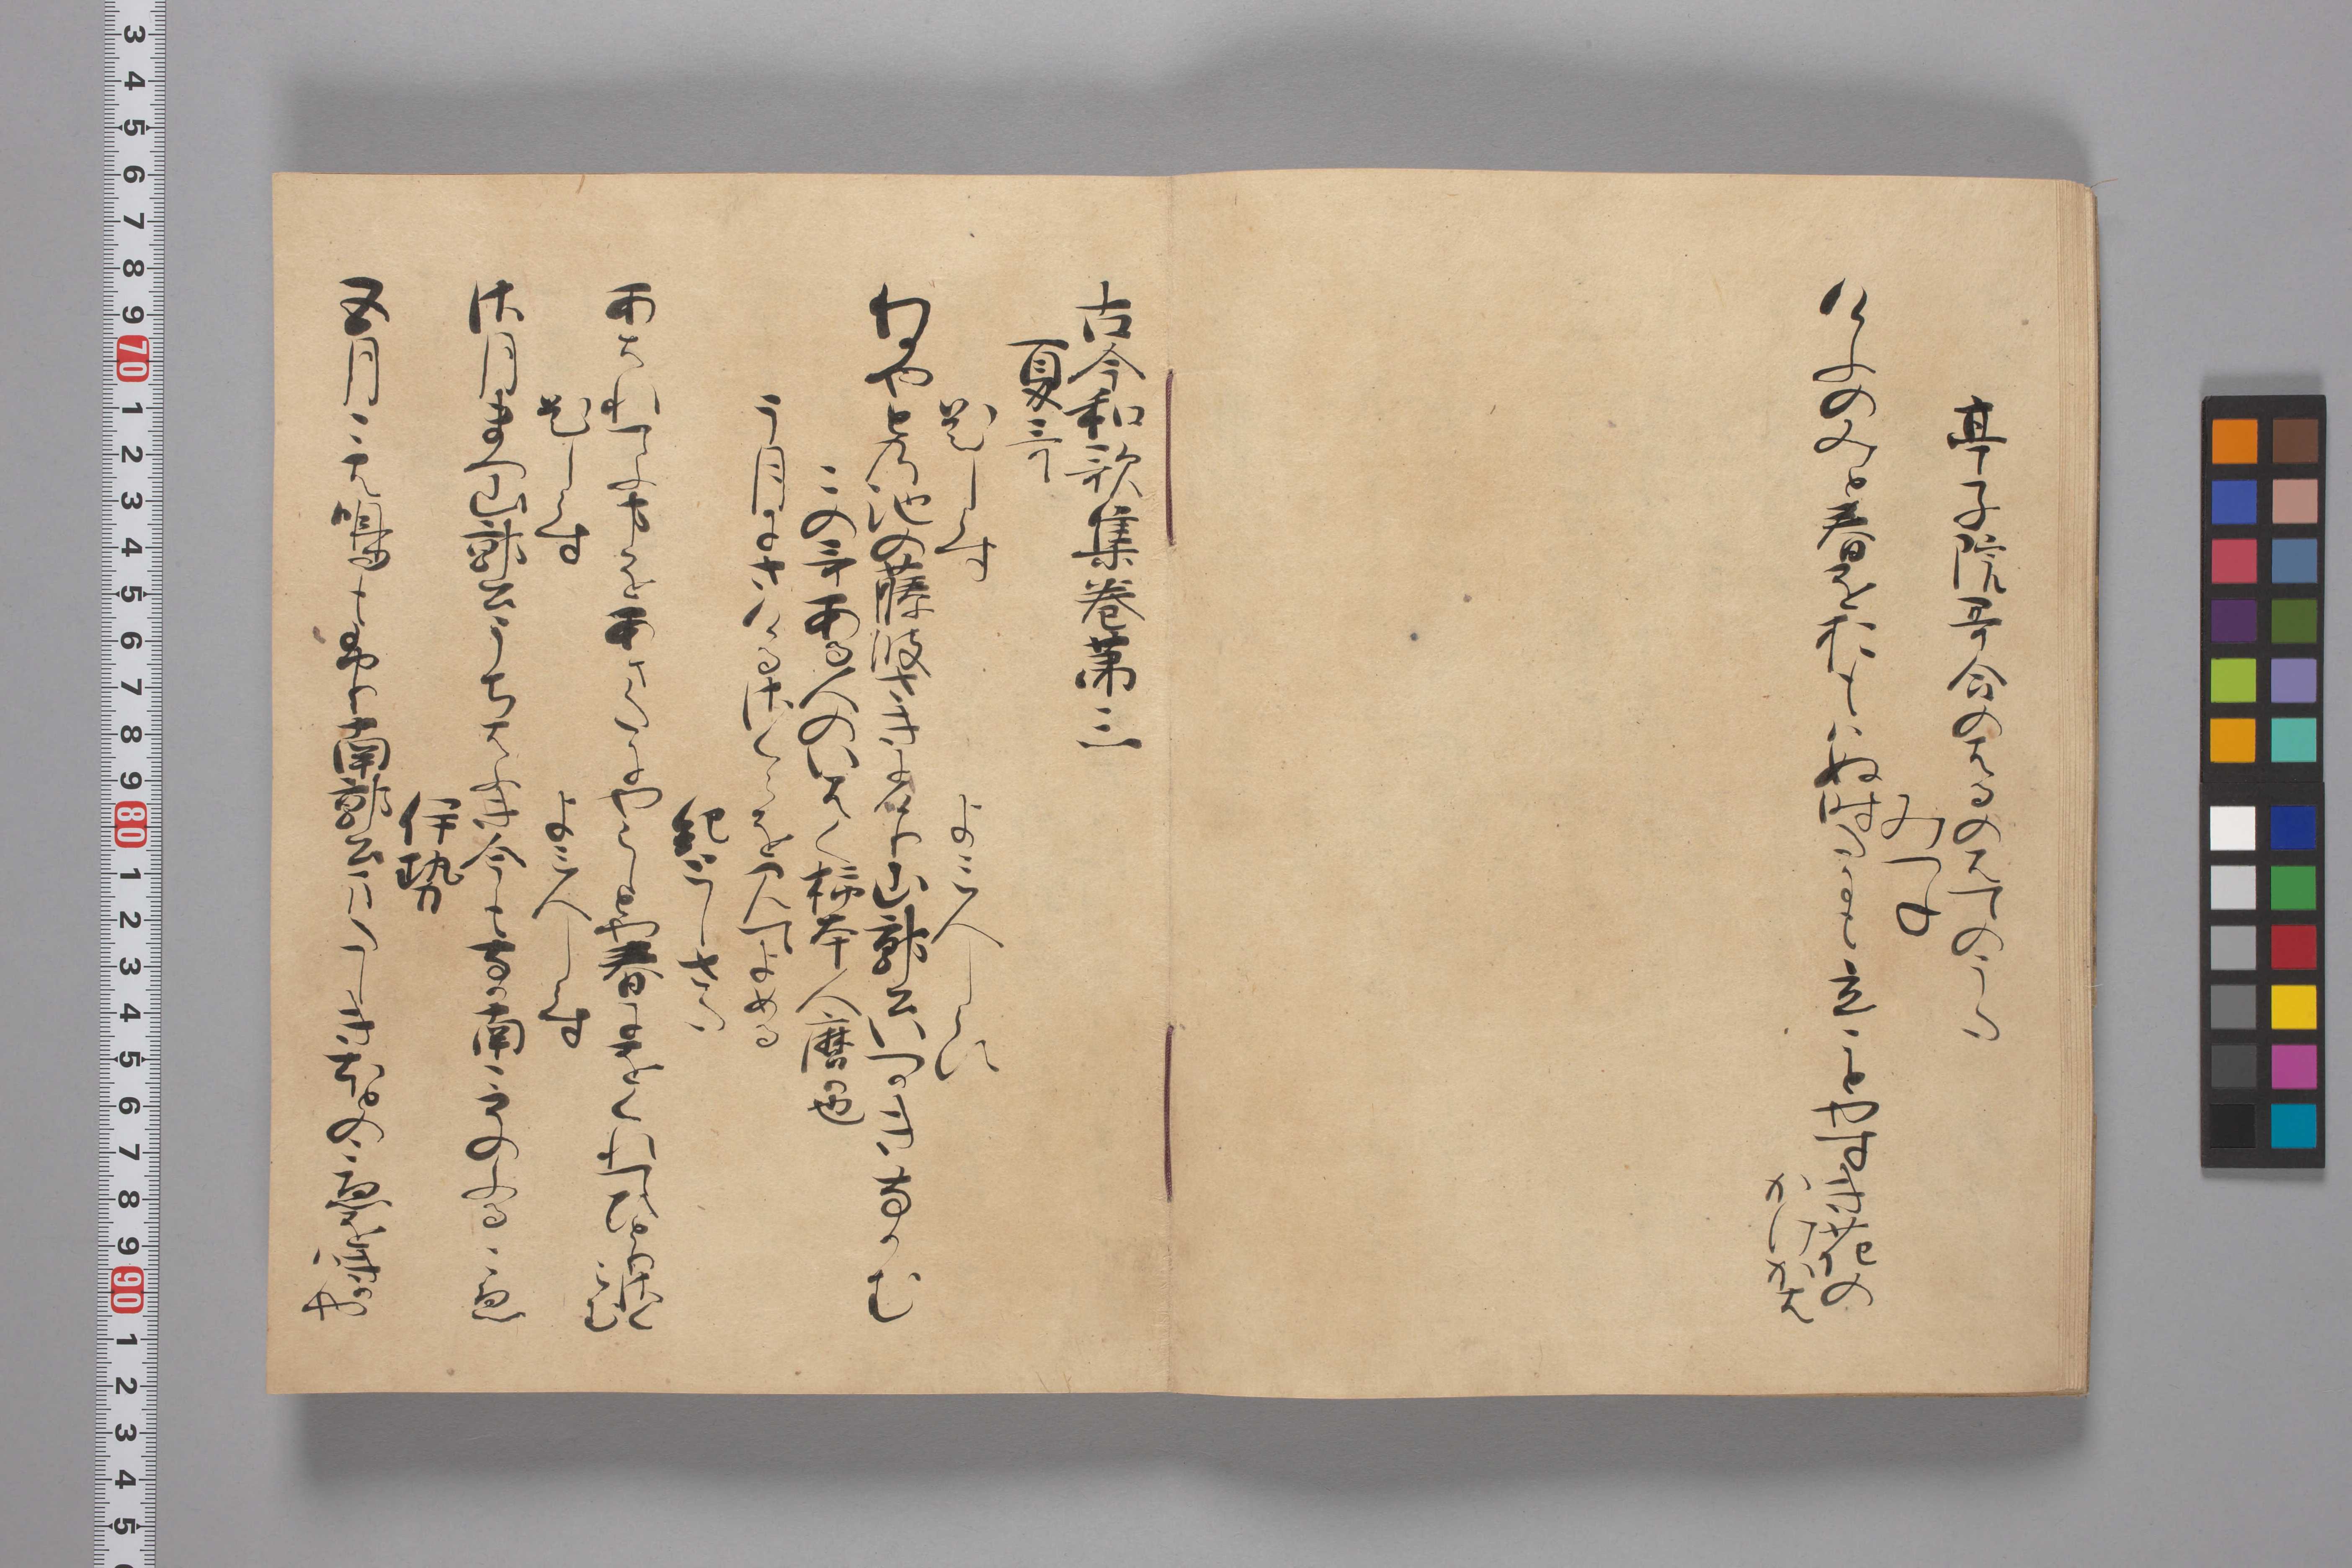 亭子院哥合のはるのはてのうた
みつね
けふのみと春をおもはぬ時たにも立ことやすき花の
かけかは
古今和歌集巻第三
夏哥
題しらす
よみ人しらす
わかやとの池の藤波さきにけり山郭公いつかきなかむ
この哥ある人のいはく柿本人麿也
う月にさけるさくらを見てよめる
紀としさた
あはれてふことをあまたにやらしとや春にをくれてひとりさく
らむ
題しらす
よみ人しらす
さ月まつ山郭公うちはふき今もなか南こそのふるこゑ
伊勢
五月こは鳴もふり南郭公またしきほとのこゑをきか
はや